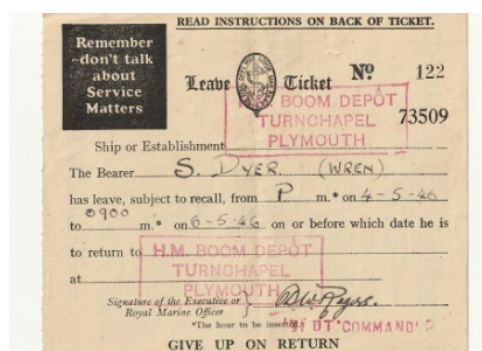 READ INSTRUCTIONS ON BACK OF TICKET.
Remember
-don't talk
about
Service
Matters
Leave Ticket Nº 122
73509
BOOM DEPÔT
TURNCHAPEL
PLYMOUTH
Ship or Establishment
The Bearer S. DYER. (WREN)
has leave, subject to recall, from P m.* on 4-5-46
to 0900 m.* on 6-5-46 on or before which date he is
to return to H.M. BOOM DEPÔT
TURNCHAPEL
at
PLYMOUTH
Signature of the Executive or
Royal Marine Officer
*The hour to be
"COMMAND"
GIVE UP ON RETURN